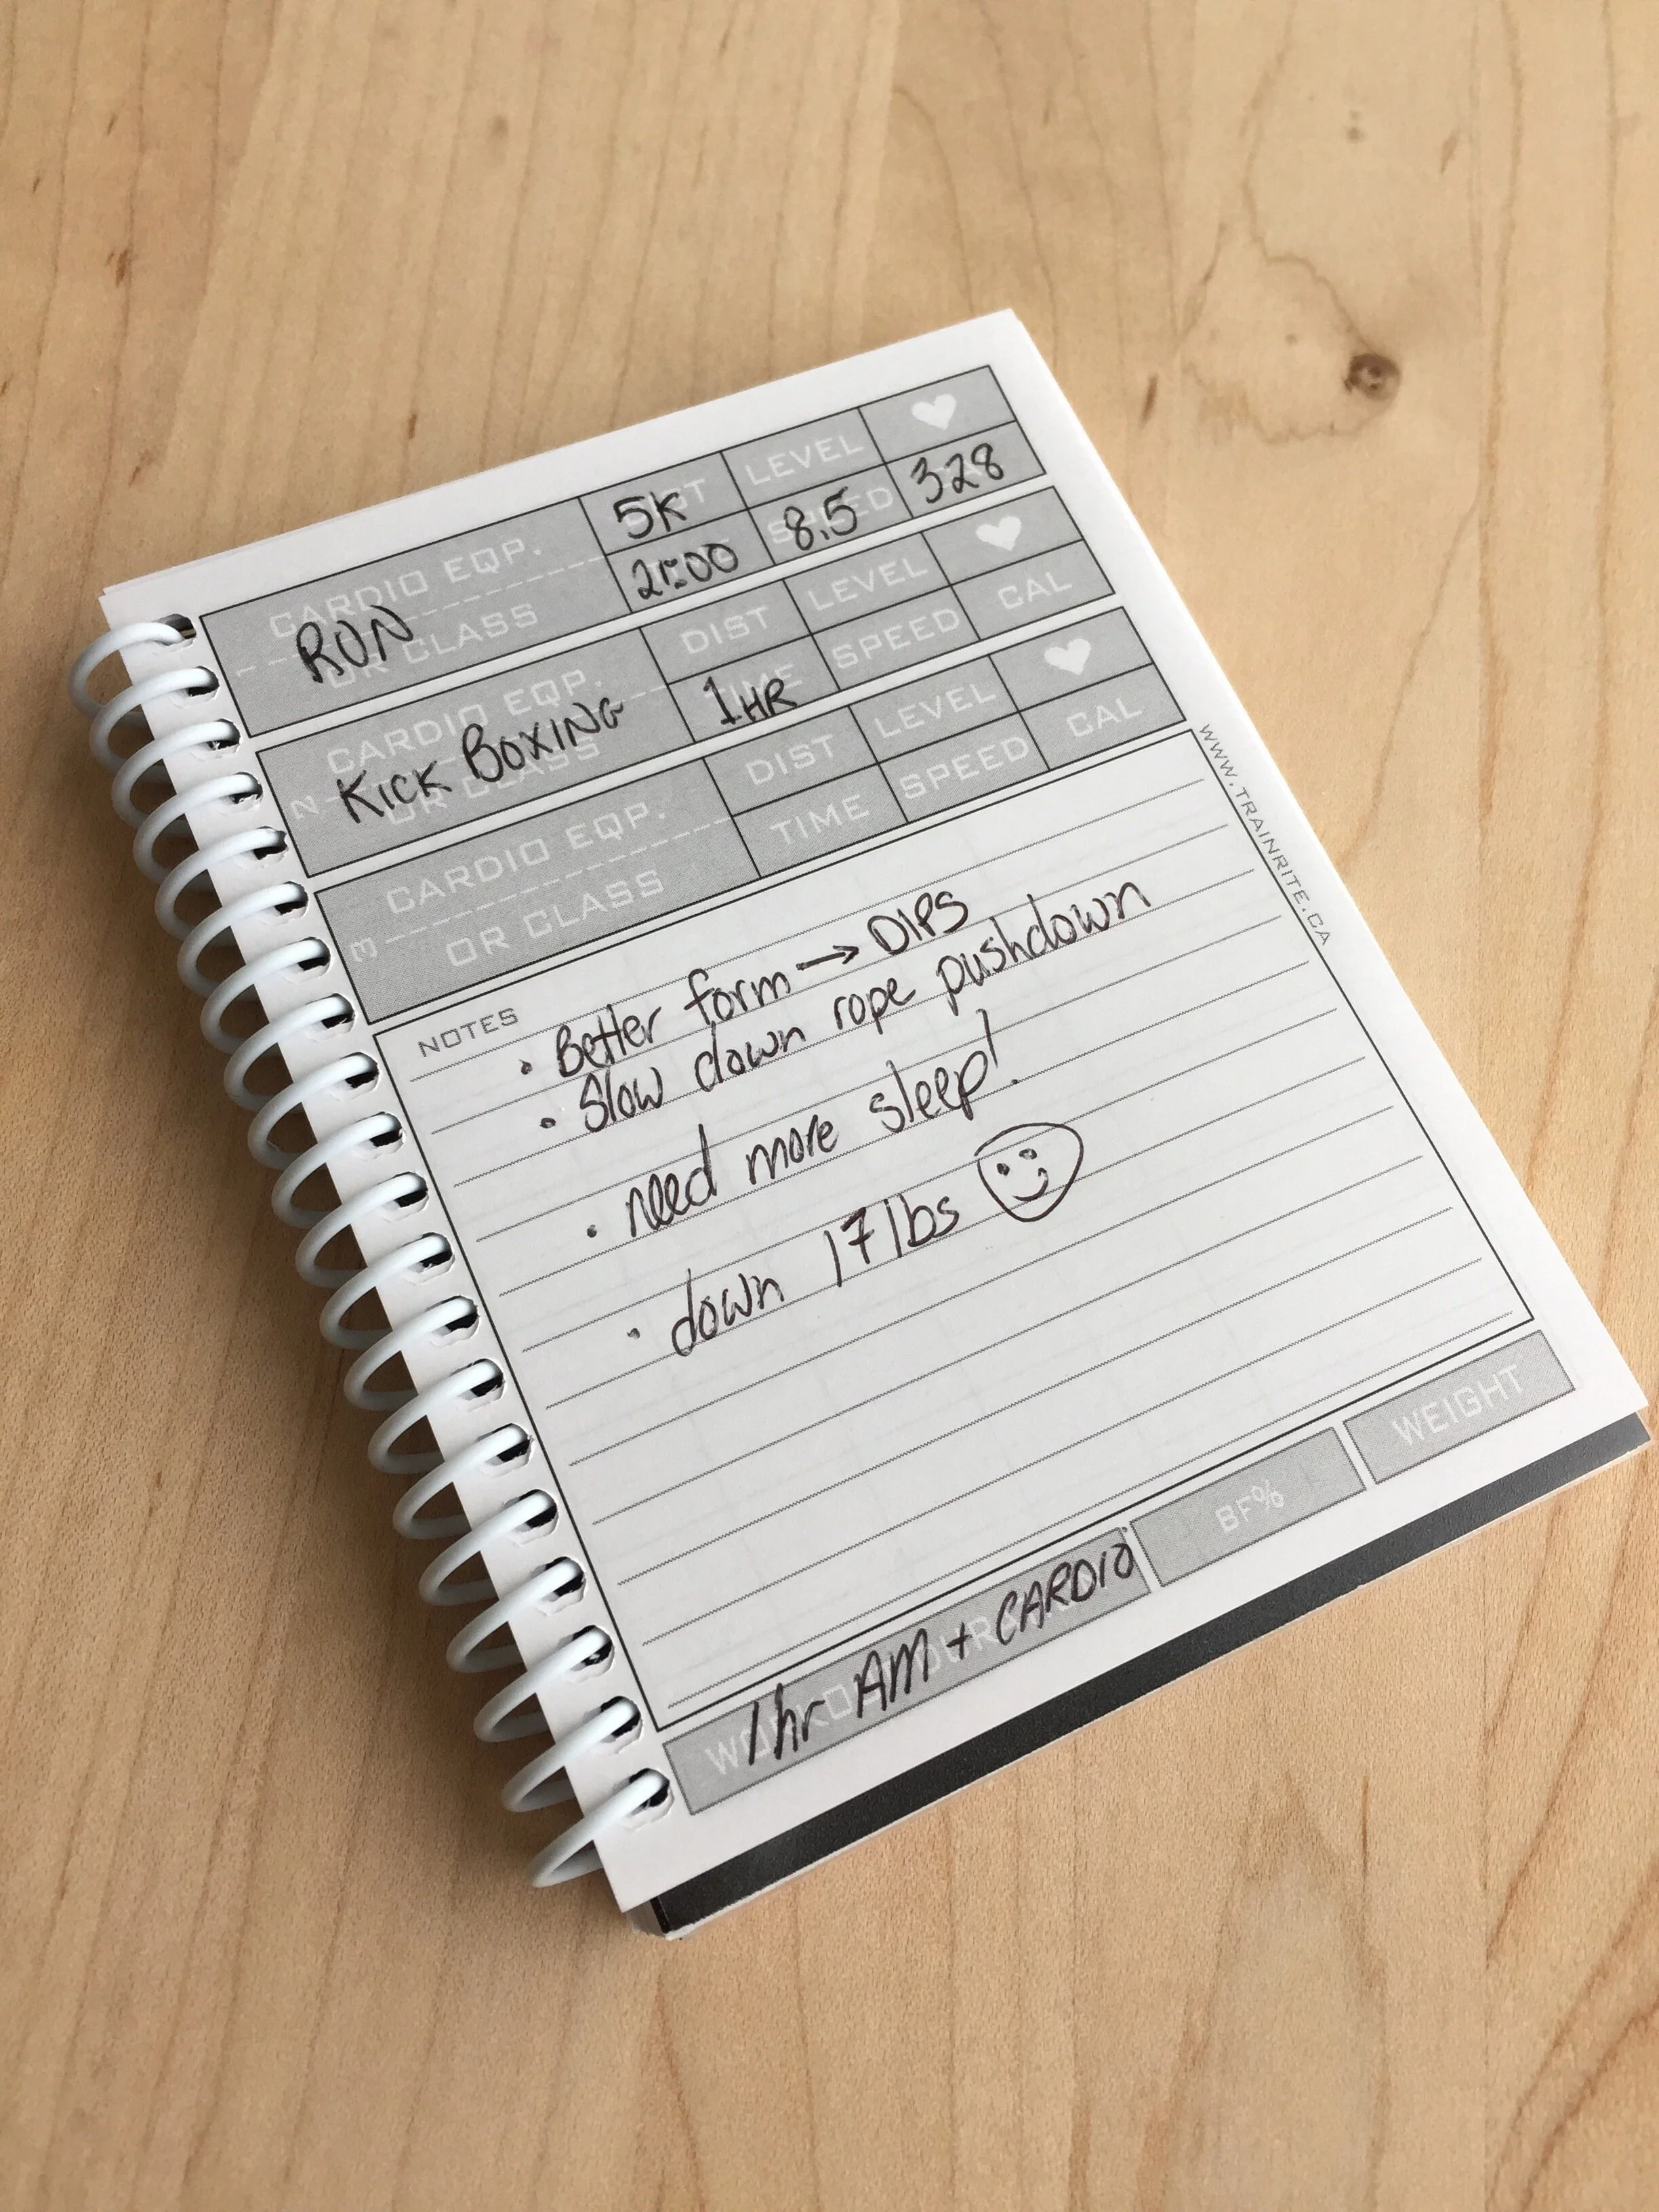 CARDIO EQP.
OR CLASS
RUN
5K
DIST
LEVEL
21:00
TIME
8.5
SPEED
328
2
CARDIO EQP.
OR CLASS
KICK BOXING
DIST
LEVEL
1HR
TIME
SPEED
CAL
3
CARDIO EQP.
OR CLASS
DIST
LEVEL
TIME
SPEED
CAL
WWW.TRAINRITE.CA
NOTES
• Better form → DIPS
• Slow down rope pushdown
• need more sleep!
• down 17 lbs ☺
1hr AM + CARDIO
BF%
WEIGHT